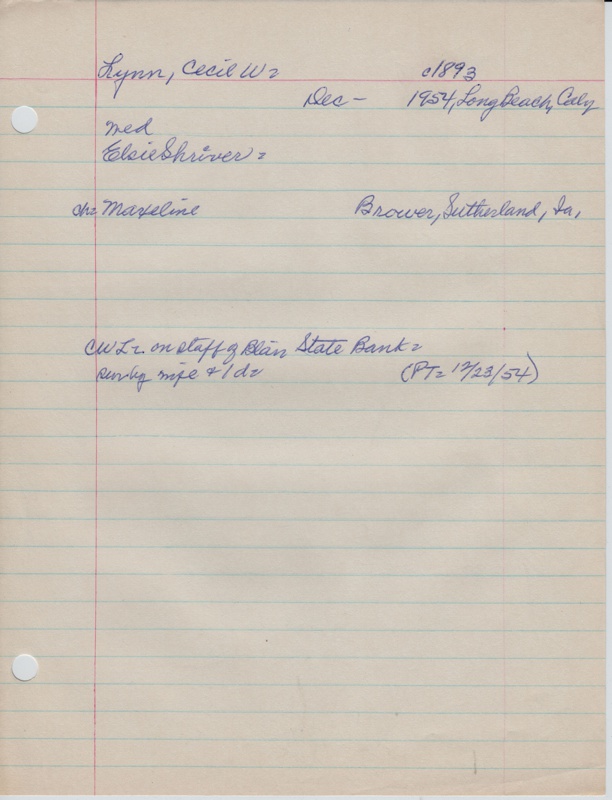 Lynn, Cecil W= c1893
Dec- 1954, Long Beach, Calif
med
Elsie Shriver=
ch= Maxeline Brower, Sutherland, Ia,
CWL= on staff of Blair State Bank=
surv by wife & 1 d= (PT= 12/23/54)